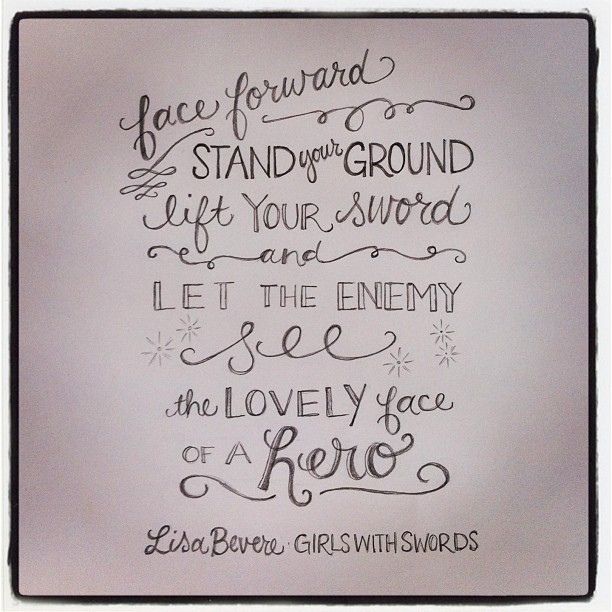 face forward
STAND your GROUND
lift YOUR sword
and
LET THE ENEMY
see
the LOVELY face
OF A hero
Lisa Bevere · GIRLS WITH SWORDS